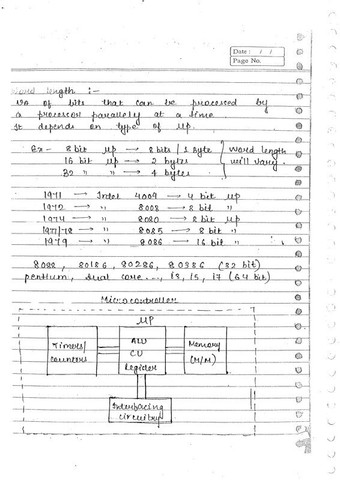 Date : / /
Page No.
Word length :-
No of bits that can be processed by
a processor parallely at a time.
It depends on type of μp.
Ex - 8 bit μp → 8 bits / 1 byte
16 bit μp → 2 bytes
32 " " → 4 bytes
Word length
will vary.
1971 → Intel 4004 → 4 bit μp
1972 → " 8008 → 8 bit "
1974 → " 8080 → 8 bit μp
1977/78 → " 8085 → 8 bit "
1979 → " 8086 → 16 bit "
80186, 80286, 80386 (32 bit)
pentium, dual core..., i3, i5, i7 (64 bit)
Microcontroller
μp
Timers/
counters
ALU
CU
Register
Memory
(M/M)
Interfacing
circuitry